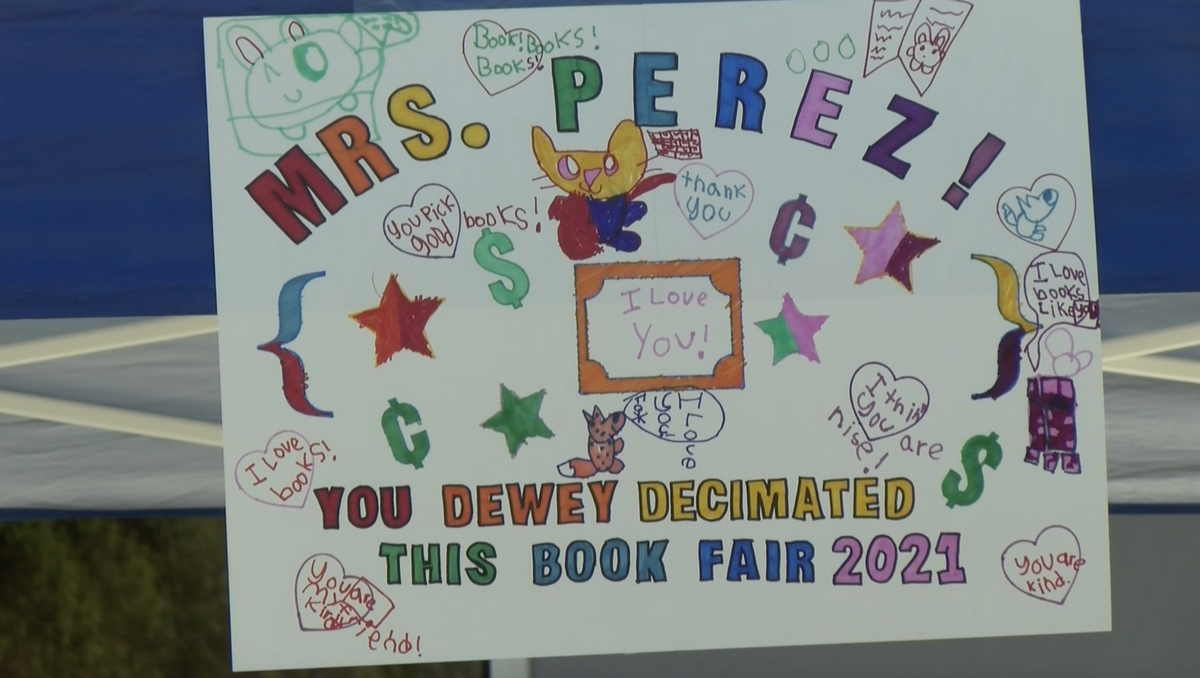 Book! Books!
Books!
MRS. PEREZ!
thank
you
You Pick
good books!
$
¢
I Love
You!
I Love
books
Like you
¢
I Love
you
Fox
I thin
you are
nise!
$
I Love
books!
YOU DEWEY DECIMATED
THIS BOOK FAIR 2021
You are
my
kind
end!
You are
kind.